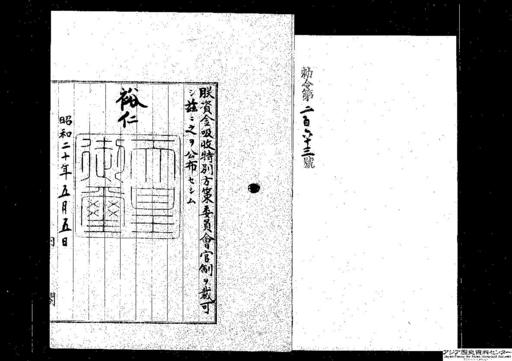 勅令第二百六十三號
朕資金吸收特別方策委員會官制ヲ裁可
シ茲ニ之ヲ公布セシム
裕仁
天皇
御璽
昭和二十年五月五日
内閣
アジア歴史資料センター